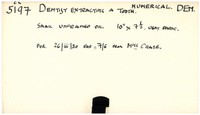 5197 DENTIST EXTRACTING A TOOTH. NUMERICAL. DEN.
SMALL UNFRAMED OIL 10" x 7½. VERY
PUR 26/iii/30 FOR 7/6 FROM CHASE.